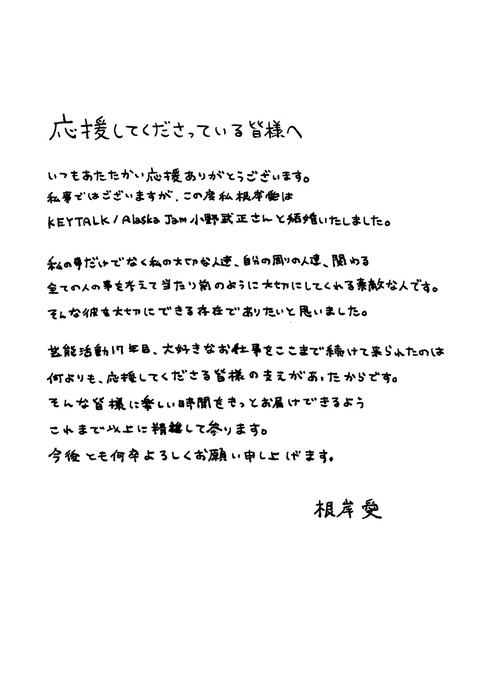 応援してくださっている皆様へ
いつもあたたかい応援ありがとうございます。
私事ではございますが、この度私根岸愛は
KEYTALK/Alaska Jam 小野武正さんと結婚いたしました。
私の事だけでなく私の大切な人達、自分の周りの人達、関わる
全ての人の事を考えて当たり前のように大切にしてくれる素敵な人です。
そんな彼を大切にできる存在でありたいと思いました。
芸能活動17年目、大好きなお仕事をここまで続けて来られたのは
何よりも、応援してくださる皆様の支えがあったからです。
そんな皆様に楽しい時間をもっとお届けできるよう
これまで以上に精進して参ります。
今後とも何卒よろしくお願い申し上げます。
根岸 愛